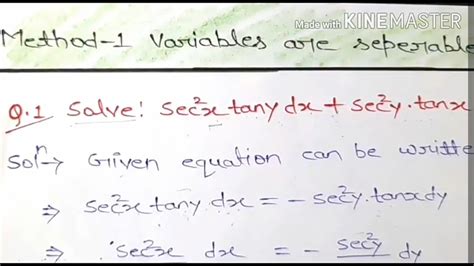 Made with KINEMASTER
Method-1 Variables are seperable
Q.1 Solve! sec²x tany dx + sec²y.tanx
Solⁿ→ Given equation can be writte
⇒ sec²x tany dx = - sec²y.tanx dy
⇒ sec²x dx = - sec²y dy